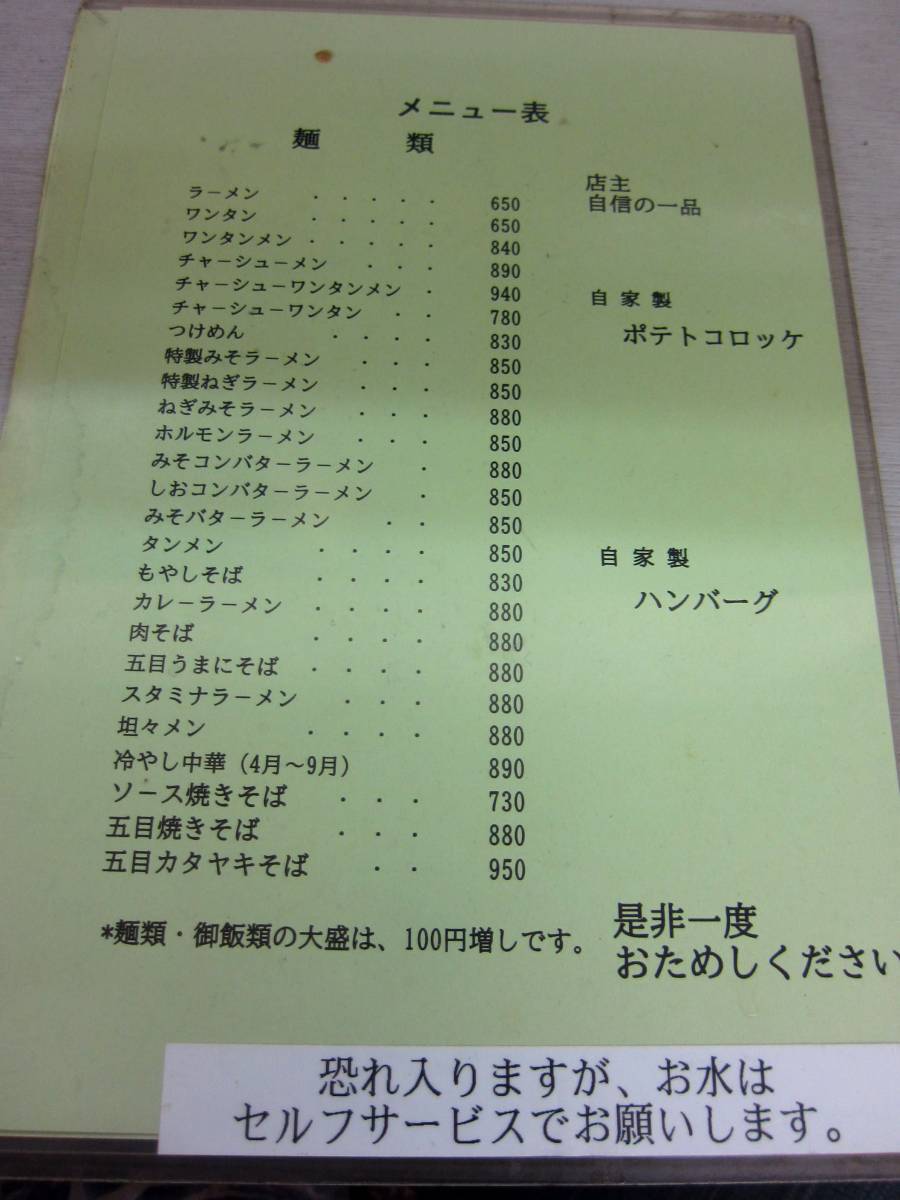 メニュー表
麺　類
ラーメン ・・・・・ 650
ワンタン ・・・・・ 650
ワンタンメン ・・・・・ 840
チャーシューメン ・・・ 890
チャーシューワンタンメン ・ 940
チャーシューワンタン ・・ 780
つけめん ・・・・ 830
特製みそラーメン ・・・ 850
特製ねぎラーメン ・・・ 850
ねぎみそラーメン ・・・ 880
ホルモンラーメン ・・・ 850
みそコンバターラーメン ・ 880
しおコンバターラーメン ・ 850
みそバターラーメン ・・ 850
タンメン ・・・・ 850
もやしそば ・・・・ 830
カレーラーメン ・・・・ 880
肉そば ・・・・ 880
五目うまにそば ・・・・ 880
スタミナラーメン ・・・ 880
坦々メン ・・・・ 880
冷やし中華（4月～9月） 890
ソース焼きそば ・・・ 730
五目焼きそば ・・・ 880
五目カタヤキそば ・・ 950
*麺類・御飯類の大盛は、100円増しです。
店主
自信の一品
自家製
ポテトコロッケ
自家製
ハンバーグ
是非一度
おためしください
恐れ入りますが、お水は
セルフサービスでお願いします。